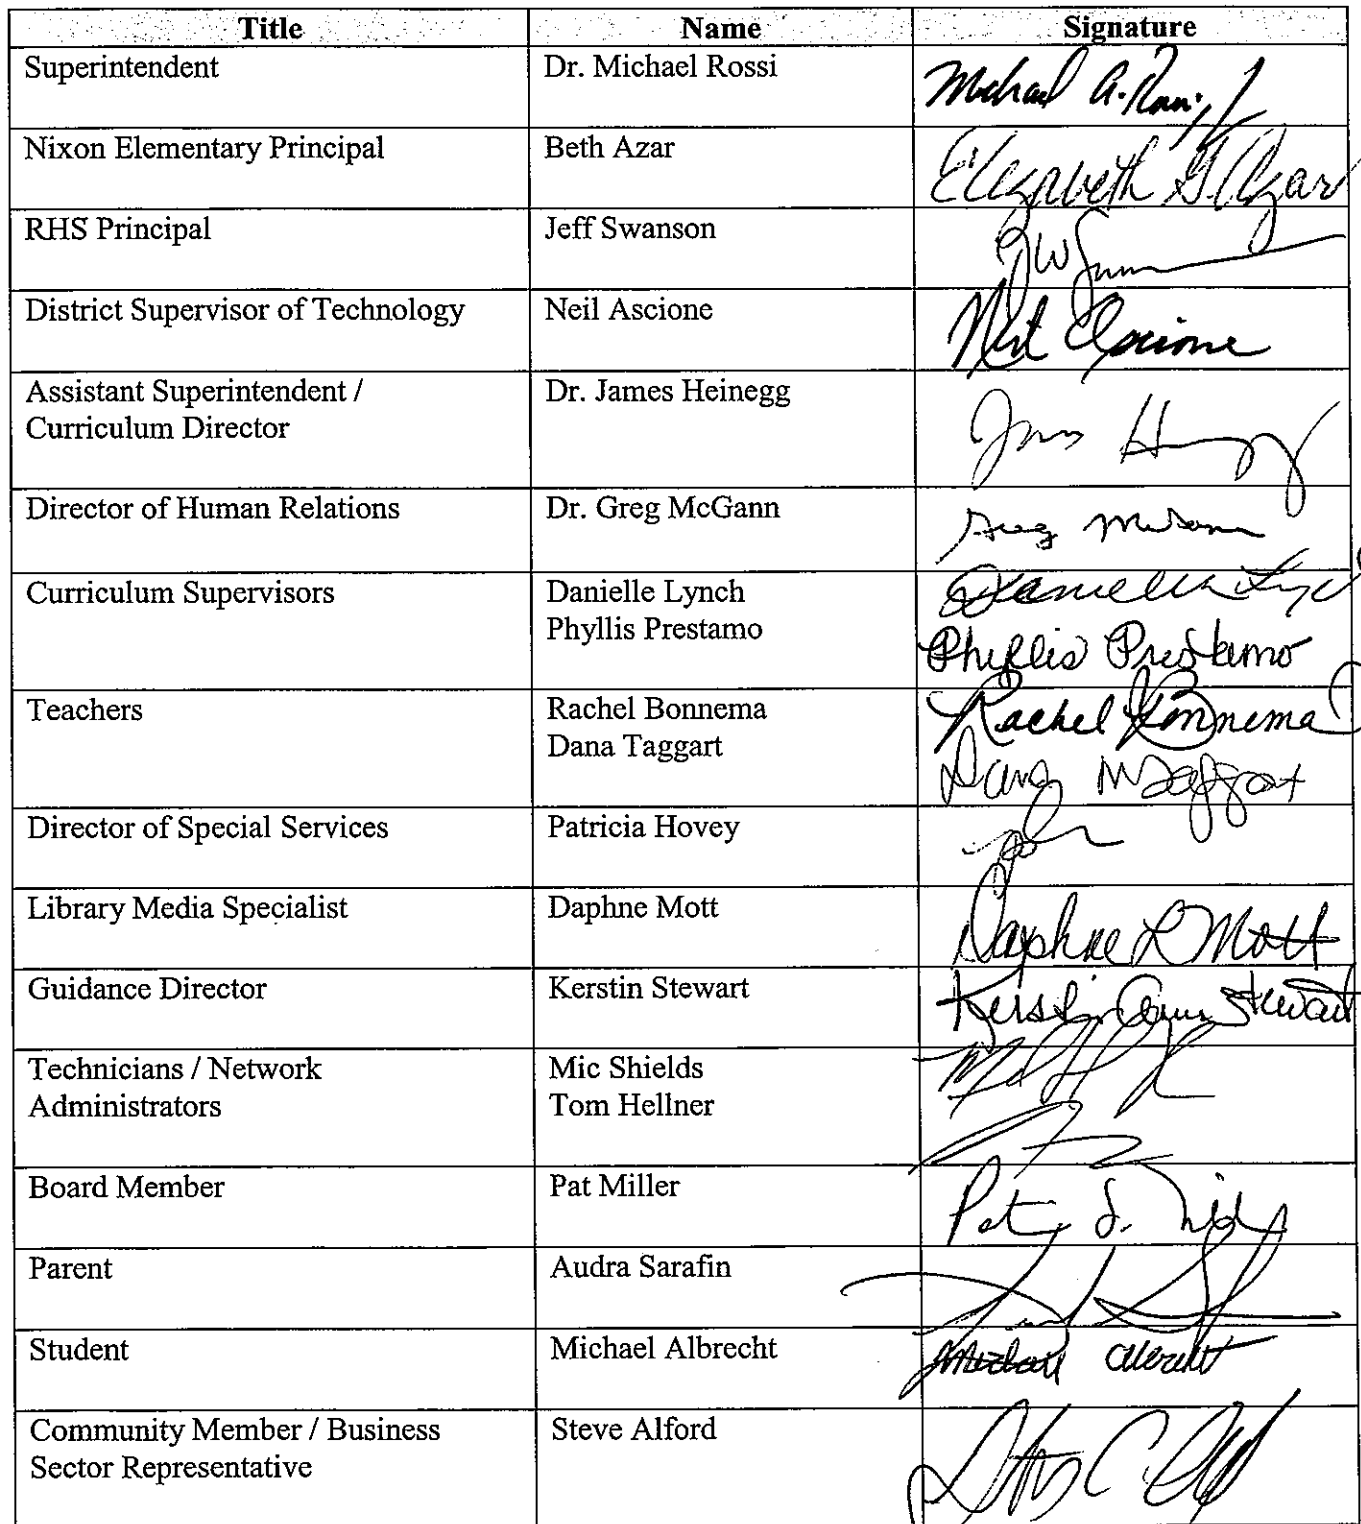 Title Name Signature
Superintendent Dr. Michael Rossi Michael A. Rossi, Jr
Nixon Elementary Principal Beth Azar Elizabeth G Azar
RHS Principal Jeff Swanson
District Supervisor of Technology Neil Ascione Neil Ascione
Assistant Superintendent / Dr. James Heinegg James
Curriculum Director
Director of Human Relations Dr. Greg McGann Greg McGann
Curriculum Supervisors Danielle Lynch Danielle Lynch
Phyllis Prestamo Phyllis Prestamo
Teachers Rachel Bonnema Rachel Bonnema
Dana Taggart Dana M Taggart
Director of Special Services Patricia Hovey
Library Media Specialist Daphne Mott Daphne L Mott
Guidance Director Kerstin Stewart Kerstin Ann Stewart
Technicians / Network Mic Shields
Administrators Tom Hellner
Board Member Pat Miller
Parent Audra Sarafin
Student Michael Albrecht Michael Albrecht
Community Member / Business Steve Alford
Sector Representative